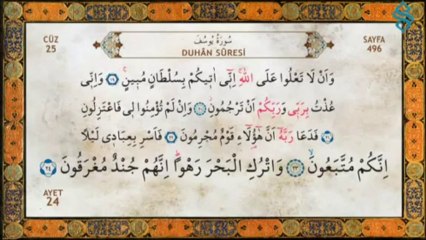 CÜZ
25
سُورَةُ يُوسُفَ
DUHÂN SÛRESİ
SAYFA
496
وَاَنْ لَا تَعْلُوا عَلَى اللّٰهِ اِنّٖٓي اٰتٖيكُمْ بِسُلْطَانٍ مُبٖينٍ ١٩ وَاِنّٖي
عُذْتُ بِرَبّٖي وَرَبِّكُمْ اَنْ تَرْجُمُونِ ٢٠ وَاِنْ لَمْ تُؤْمِنُوا لٖي فَاعْتَزِلُونِ
٢١ فَدَعَا رَبَّهُٓ اَنَّ هٰٓؤُ۬لَٓاءِ قَوْمٌ مُجْرِمُونَ ٢٢ فَاَسْرِ بِعِبَادٖي لَيْلاً
اِنَّكُمْ مُتَّبَعُونَۙ ٢٣ وَاتْرُكِ الْبَحْرَ رَهْواًؕ اِنَّهُمْ جُنْدٌ مُغْرَقُونَ ٢٤
AYET
24